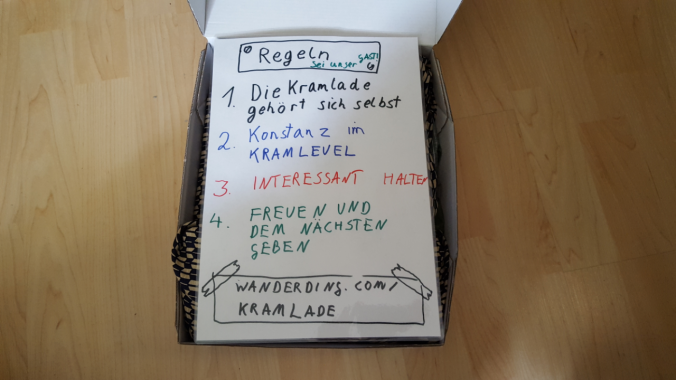 Regeln
sei unser GAST!
1. Die Kramlade
gehört sich selbst
2. Konstanz im
KRAMLEVEL
3. INTERESSANT HALTEN
4. FREUEN UND
DEM NÄCHSTEN
GEBEN
WANDERDING.COM/
KRAMLADE